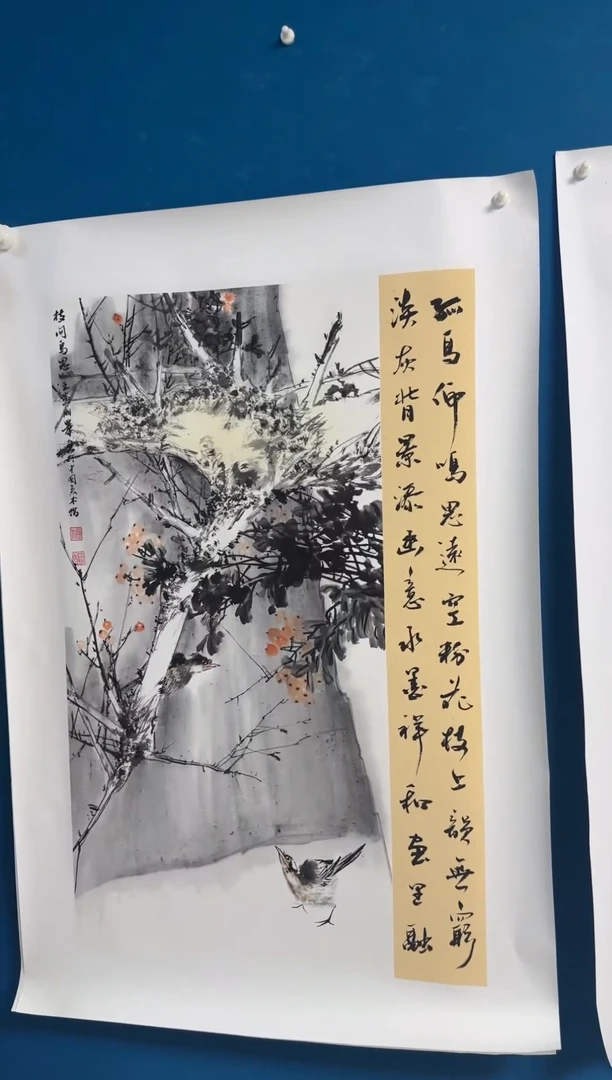 孤鸟仰鸣思远空粉花枝上韵无穷
淡灰背景添画意水墨祥和画里融
枝间鸟思